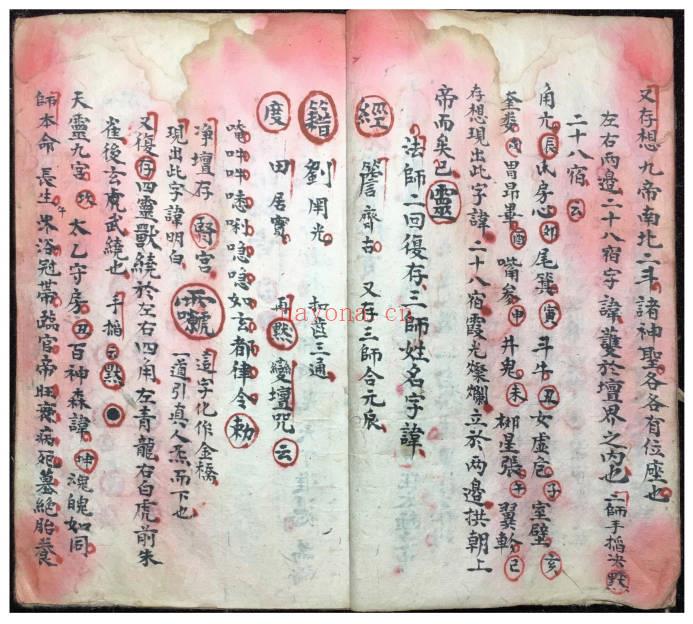 又存想九帝南北二斗諸神聖各各有位座也
左右兩邊二十八宿字諱護於壇界之內也 二師手掐決默
二十八宿云
角亢辰氐房心卯尾箕寅斗牛丑女虛危子室壁亥
奎婁戌胃昴畢酉嘴参申井鬼未柳星張午翼軫巳
存想現出此字諱二十八宿霞光燦爛立於两邊拱朝上
帝而矣巴靈
法師二回復存三師姓名字諱
經 詹齊古 又存三師合元辰
籍 劉用光 扣齒三通
度 田居實 再默變壇咒云
唵吽吽
如玄都律令勅
净壇存 宮 這字化作金橋
現出此字諱明白 一道引真人炁而下也
又復存四靈獸繞於左右四角左青龍右白虎前朱
雀後玄武繞也 手掐云默
天靈九宮坎太乙守房丑百神森諱坤魂魄如同
師本命午長生沐浴冠帶臨官帝旺衰病死墓絕胎養
nayona.cn